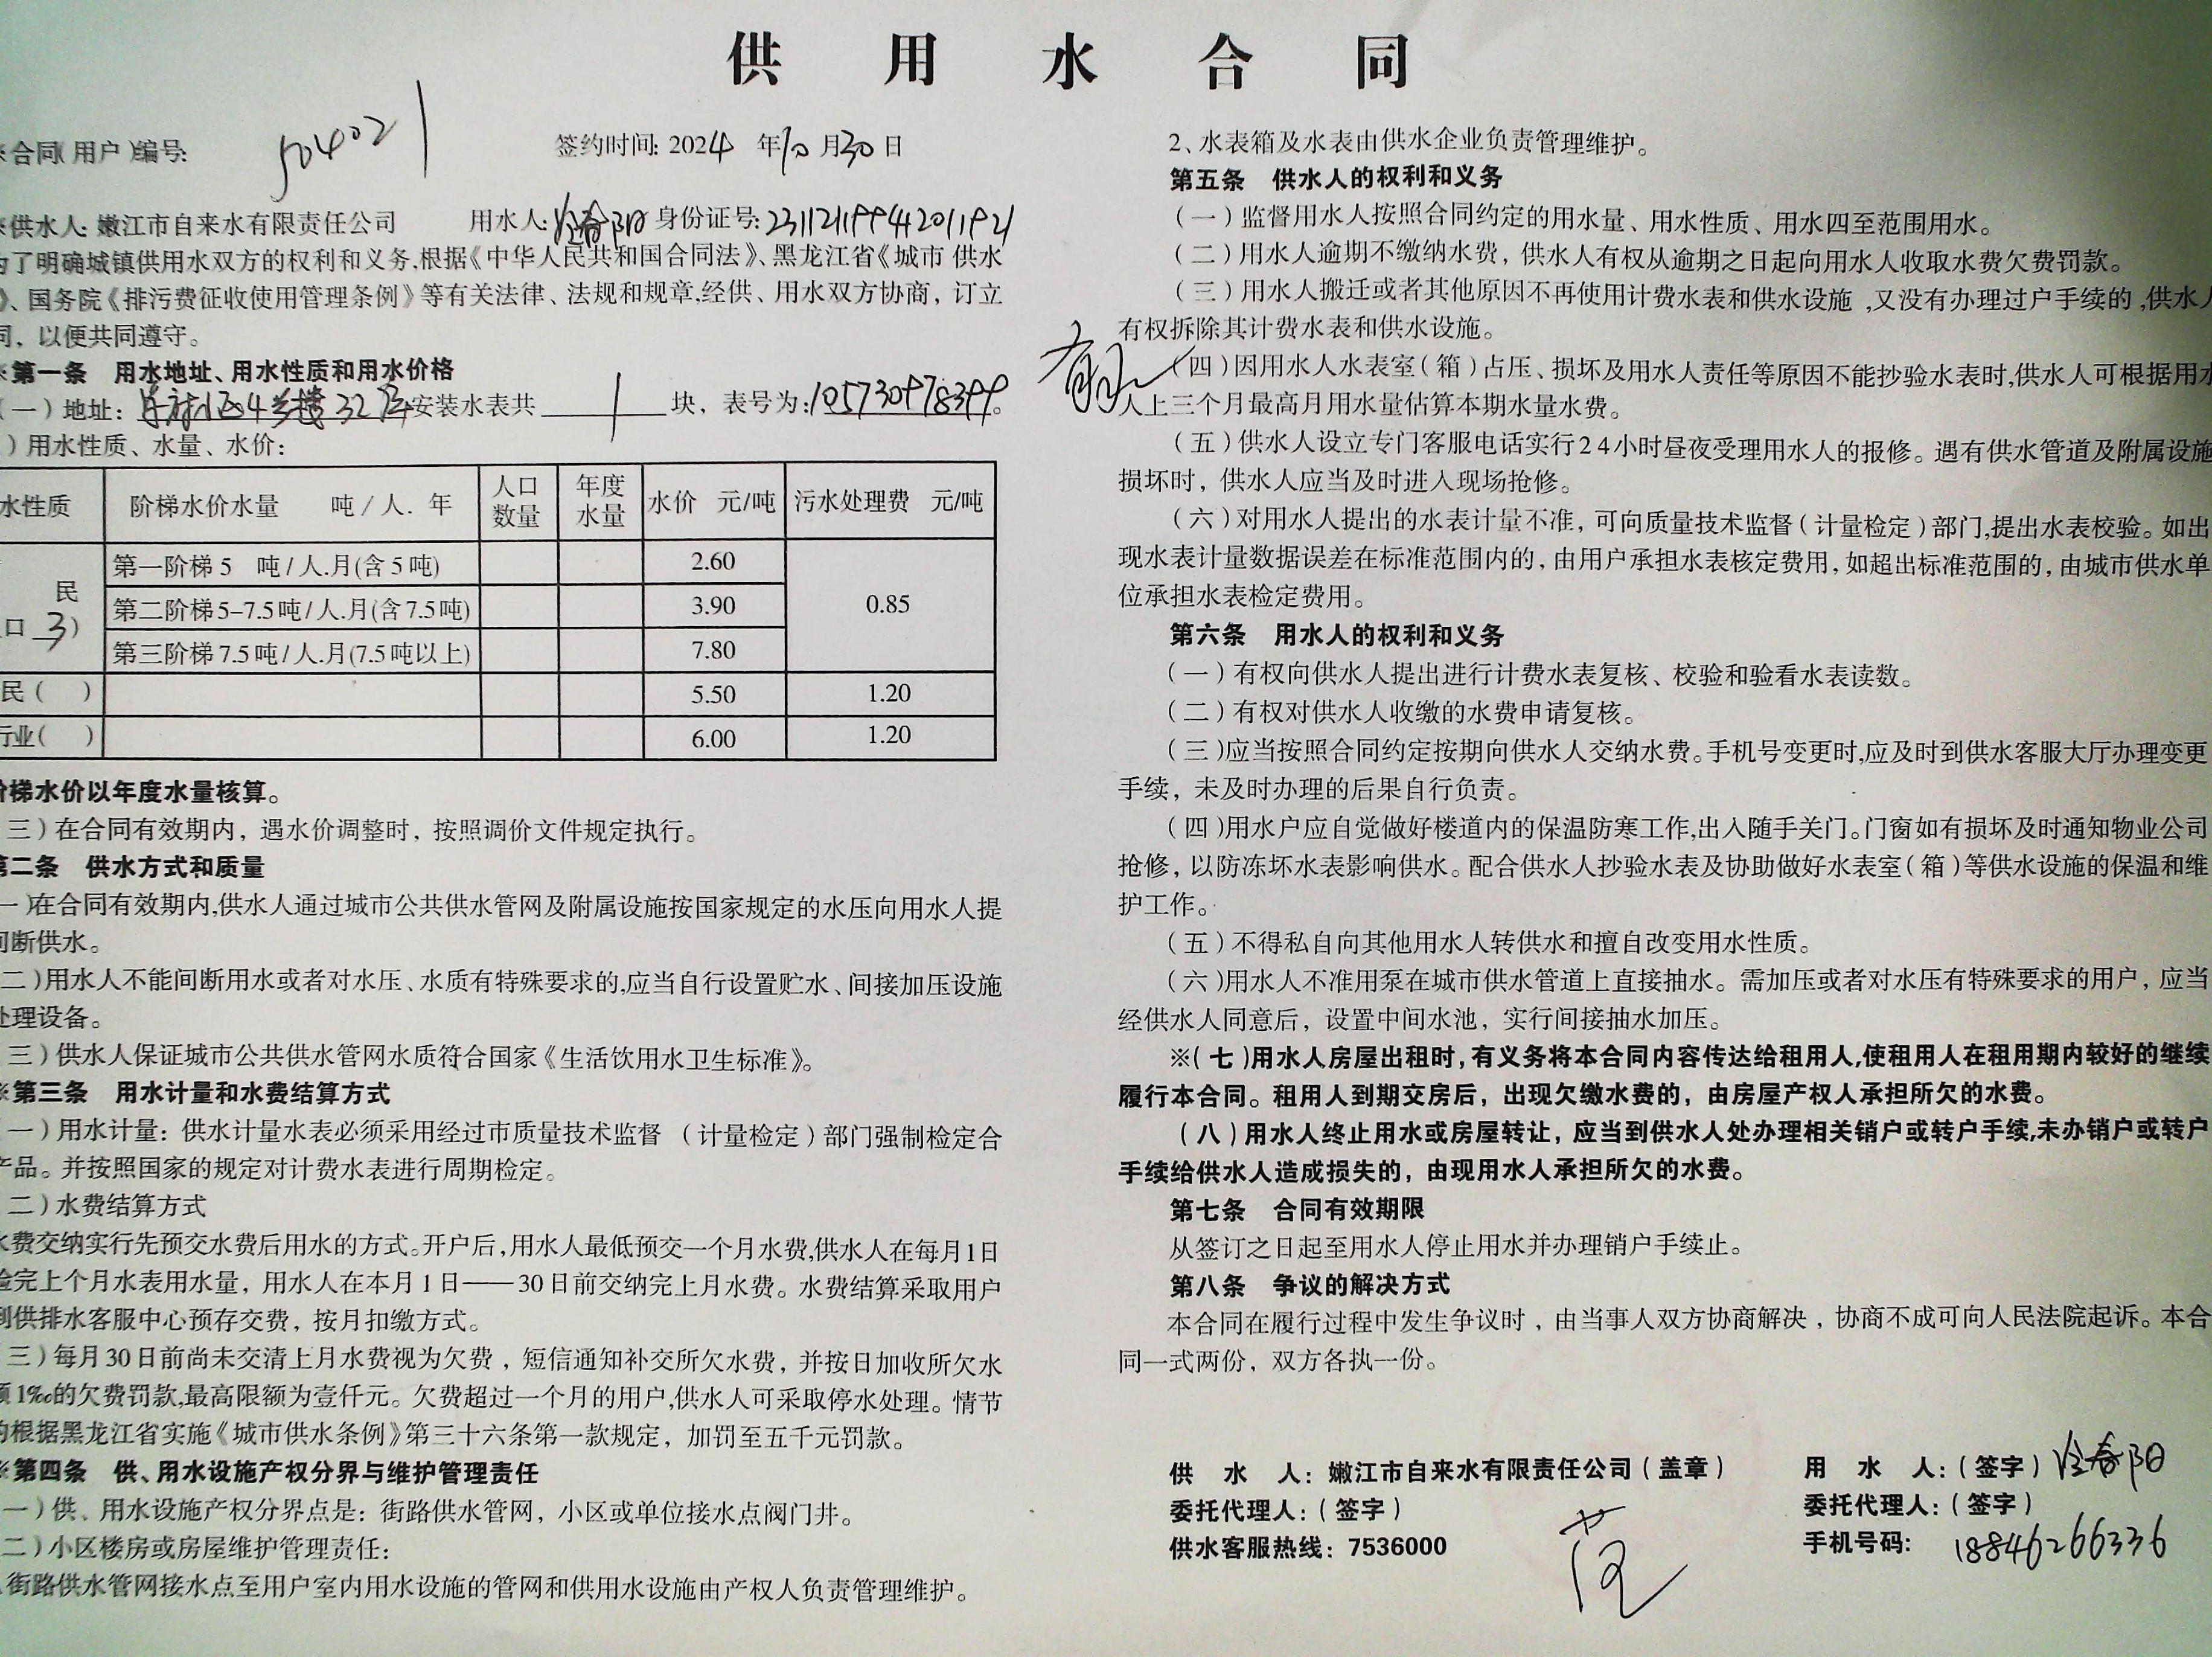 供用水合同
※合同(用户)编号: 504021
签约时间: 2024年10月30日
※供水人: 嫩江市自来水有限责任公司 用水人: 春阳 身份证号:
为了明确城镇供用水双方的权利和义务,根据《中华人民共和国合同法》、黑龙江省《城市 供水
》、国务院《排污费征收使用管理条例》等有关法律、法规和规章,经供、用水双方协商，订立
同，以便共同遵守。
※第一条 用水地址、用水性质和用水价格
(一)地址: 小区4号楼32 安装水表共 1 块，表号为: 105730978399。
)用水性质、水量、水价:
水性质 阶梯水价水量 吨/人. 年 人口数量 年度水量 水价 元/吨 污水处理费 元/吨
民
口 3)
第一阶梯5 吨/人.月(含5吨) 2.60
第二阶梯5-7.5吨/人.月(含7.5吨) 3.90 0.85
第三阶梯7.5吨/人.月(7.5吨以上) 7.80
民( ) 5.50 1.20
行业( ) 6.00 1.20
阶梯水价以年度水量核算。
三)在合同有效期内，遇水价调整时，按照调价文件规定执行。
第二条 供水方式和质量
一)在合同有效期内,供水人通过城市公共供水管网及附属设施按国家规定的水压向用水人提
间断供水。
二)用水人不能间断用水或者对水压、水质有特殊要求的,应当自行设置贮水、间接加压设施
处理设备。
三)供水人保证城市公共供水管网水质符合国家《生活饮用水卫生标准》。
※第三条 用水计量和水费结算方式
(一)用水计量：供水计量水表必须采用经过市质量技术监督 (计量检定)部门强制检定合
产品。并按照国家的规定对计费水表进行周期检定。
二)水费结算方式
水费交纳实行先预交水费后用水的方式。开户后,用水人最低预交一个月水费,供水人在每月1日
验完上个月水表用水量，用水人在本月1日——30日前交纳完上月水费。水费结算采取用户
到供排水客服中心预存交费，按月扣缴方式。
三)每月30日前尚未交清上月水费视为欠费，短信通知补交所欠水费，并按日加收所欠水
额1‰的欠费罚款,最高限额为壹仟元。欠费超过一个月的用户,供水人可采取停水处理。情节
的根据黑龙江省实施《城市供水条例》第三十六条第一款规定，加罚至五千元罚款。
※第四条 供、用水设施产权分界与维护管理责任
一)供、用水设施产权分界点是：街路供水管网，小区或单位接水点阀门井。
二)小区楼房或房屋维护管理责任:
街路供水管网接水点至用户室内用水设施的管网和供用水设施由产权人负责管理维护。
2、水表箱及水表由供水企业负责管理维护。
第五条 供水人的权利和义务
(一)监督用水人按照合同约定的用水量、用水性质、用水四至范围用水。
(二)用水人逾期不缴纳水费，供水人有权从逾期之日起向用水人收取水费欠费罚款。
(三)用水人搬迁或者其他原因不再使用计费水表和供水设施,又没有办理过户手续的,供水人
有权拆除其计费水表和供水设施。
(四)因用水人水表室(箱)占压、损坏及用水人责任等原因不能抄验水表时,供水人可根据用水
人上三个月最高月用水量估算本期水量水费。
(五)供水人设立专门客服电话实行24小时昼夜受理用水人的报修。遇有供水管道及附属设施
损坏时，供水人应当及时进入现场抢修。
(六)对用水人提出的水表计量不准，可向质量技术监督(计量检定)部门,提出水表校验。如出
现水表计量数据误差在标准范围内的，由用户承担水表核定费用，如超出标准范围的，由城市供水单
位承担水表检定费用。
第六条 用水人的权利和义务
(一)有权向供水人提出进行计费水表复核、校验和验看水表读数。
(二)有权对供水人收缴的水费申请复核。
(三)应当按照合同约定按期向供水人交纳水费。手机号变更时,应及时到供水客服大厅办理变更
手续，未及时办理的后果自行负责。
(四)用水户应自觉做好楼道内的保温防寒工作,出入随手关门。门窗如有损坏及时通知物业公司
抢修，以防冻坏水表影响供水。配合供水人抄验水表及协助做好水表室(箱)等供水设施的保温和维
护工作。
(五)不得私自向其他用水人转供水和擅自改变用水性质。
(六)用水人不准用泵在城市供水管道上直接抽水。需加压或者对水压有特殊要求的用户，应当
经供水人同意后，设置中间水池，实行间接抽水加压。
※(七)用水人房屋出租时,有义务将本合同内容传达给租用人,使租用人在租用期内较好的继续
履行本合同。租用人到期交房后，出现欠缴水费的，由房屋产权人承担所欠的水费。
(八)用水人终止用水或房屋转让，应当到供水人处办理相关销户或转户手续,未办销户或转户
手续给供水人造成损失的，由现用水人承担所欠的水费。
第七条 合同有效期限
从签订之日起至用水人停止用水并办理销户手续止。
第八条 争议的解决方式
本合同在履行过程中发生争议时，由当事人双方协商解决，协商不成可向人民法院起诉。本合
同一式两份，双方各执一份。
供 水 人: 嫩江市自来水有限责任公司(盖章) 用 水 人:(签字) 春阳
委托代理人:(签字) 委托代理人:(签字)
供水客服热线: 7536000 手机号码: 18846266336